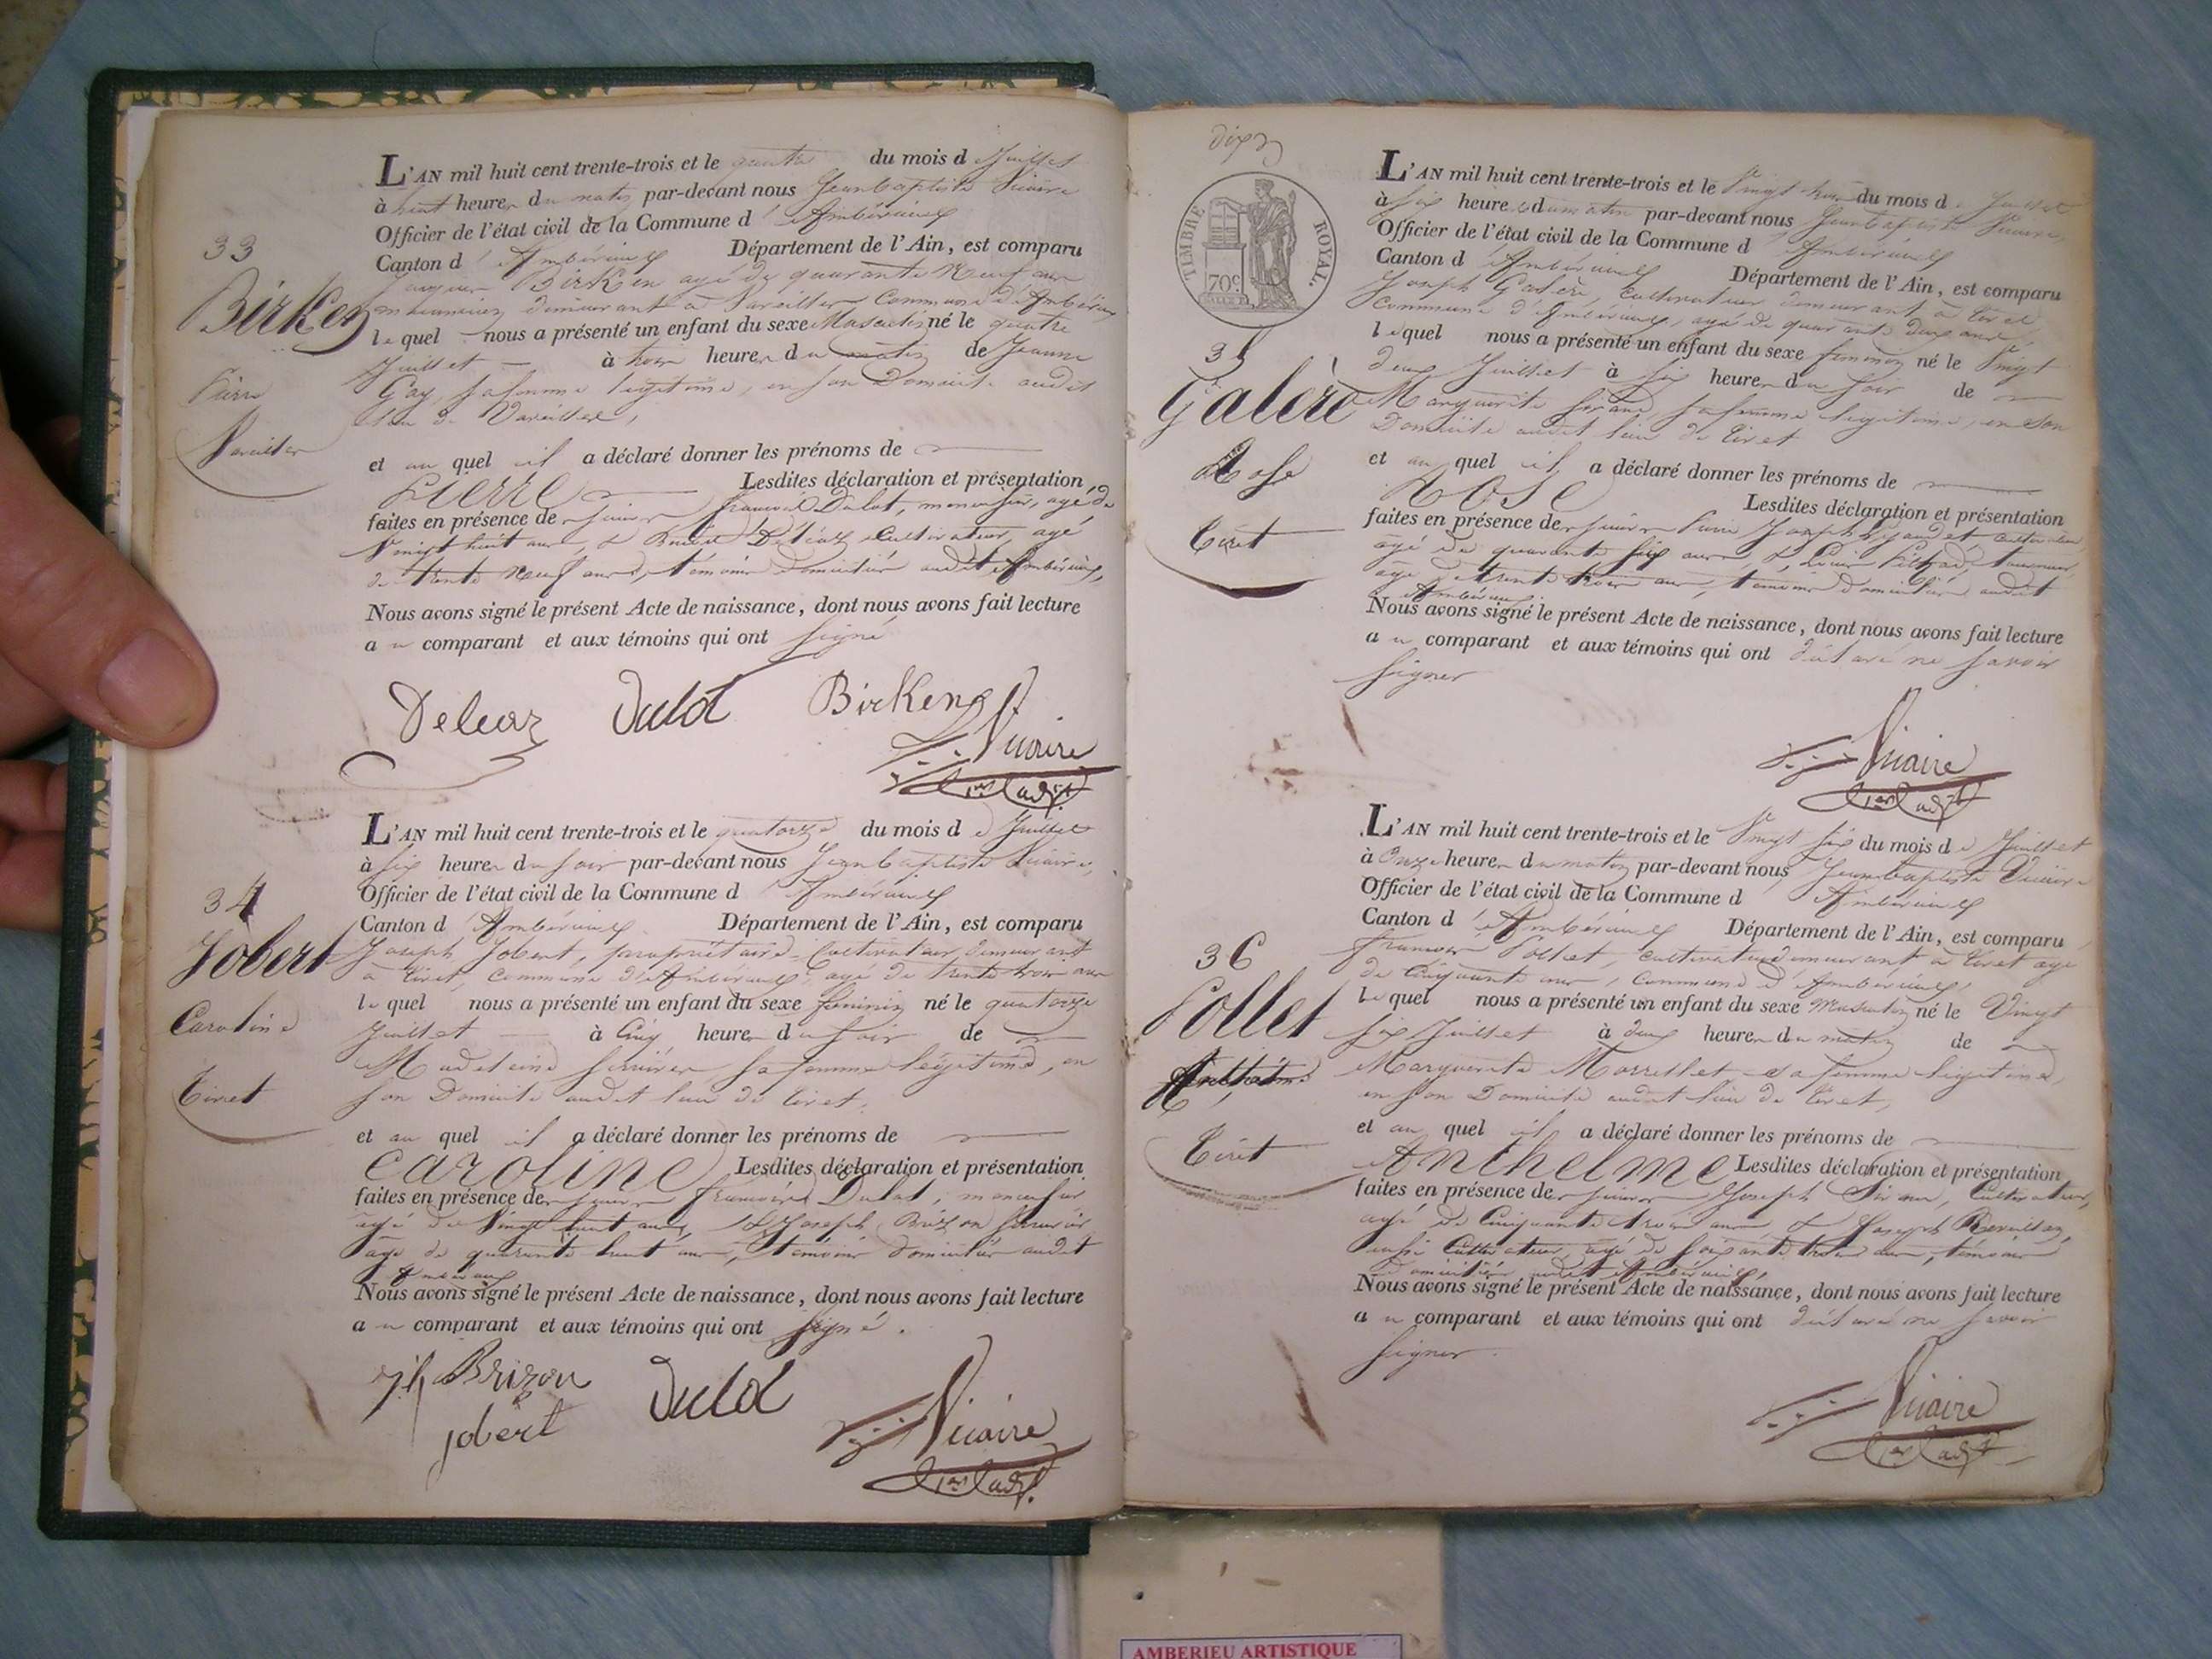 33
Birken
Pierre
Vareilles
L'AN mil huit cent trente-trois et le quatre du mois de Juillet
à huit heures du matin par-devant nous Jean baptiste Vicaire
Officier de l'état civil de la Commune d'Ambérieux
Canton d'Ambérieux Département de l'Ain, est comparu
Jacques Birken agé de quarante neuf ans
demeurant à Vareilles Commune d'Ambérieux
lequel nous a présenté un enfant du sexe Masculin né le quatre
Juillet à trois heures du matin de Jeanne
Gay, sa femme légitime, en son Domicile audit
lieu de Vareilles,
et auquel il a déclaré donner les prénoms de
Pierre Lesdites déclaration et présentation
faites en présence de sieurs François Dulot, menuisier, agé de
Vingt huit ans, & Deléaz Cultivateur, agé
de trente neuf ans, témoins domiciliés audit Ambérieux,
Nous avons signé le présent Acte de naissance, dont nous avons fait lecture
au comparant et aux témoins qui ont signé
Deleaz Dulot Birken
Vicaire
1er adjt
34
Jobert
Caroline
Tiret
L'AN mil huit cent trente-trois et le quatorze du mois de Juillet
à six heures du soir par-devant nous Jean baptiste Vicaire,
Officier de l'état civil de la Commune d'Ambérieux
Canton d'Ambérieux Département de l'Ain, est comparu
Joseph Jobert, propriétaire-Cultivateur demeurant
à Tiret, commune d'Ambérieux, agé de trente trois ans
lequel nous a présenté un enfant du sexe féminin né le quatorze
Juillet à Cinq heures du soir de
Madeleine sa femme légitime, en
son Domicile audit lieu de Tiret,
et auquel il a déclaré donner les prénoms de
Caroline Lesdites déclaration et présentation
faites en présence de sieurs François Dulot, menuisier
agé de Vingt huit ans, & Joseph Brizon
âgé de quarante huit ans, témoins domiciliés audit
Ambérieux
Nous avons signé le présent Acte de naissance, dont nous avons fait lecture
au comparant et aux témoins qui ont signé.
jh Brizon Dulot
jobert
Vicaire
1er adjt
dix
TIMBRE ROYAL.
70c
35
Galère
Rose
Tiret
L'AN mil huit cent trente-trois et le Vingt trois du mois de Juillet
à six heures du matin par-devant nous Jean baptiste Vicaire,
Officier de l'état civil de la Commune d'Ambérieux
Canton d'Ambérieux Département de l'Ain, est comparu
Joseph Galère, cultivateur demeurant à Tiret,
commune d'Ambérieux, agé de quarante deux ans,
lequel nous a présenté un enfant du sexe féminin né le Vingt
deux Juillet à six heures du soir de
Marguerite sa femme légitime, en son
Domicile audit lieu de Tiret
et auquel il a déclaré donner les prénoms de
Rose Lesdites déclaration et présentation
faites en présence de sieurs Pierre Joseph cultivateur
agé de quarante six ans, &
âgé de trente trois ans, témoins domiciliés audit
Ambérieux
Nous avons signé le présent Acte de naissance, dont nous avons fait lecture
au comparant et aux témoins qui ont déclaré ne savoir
signer
Vicaire
1er adjt
36
Pollet
Anthelme
Tiret
L'AN mil huit cent trente-trois et le Vingt six du mois de Juillet
à Onze heures du matin par-devant nous Jean baptiste Vicaire
Officier de l'état civil de la Commune d'Ambérieux
Canton d'Ambérieux Département de l'Ain, est comparu
François Pollet, cultivateur demeurant à Tiret agé
de Cinquante ans, commune d'Ambérieux,
lequel nous a présenté un enfant du sexe Masculin né le Vingt
six Juillet à deux heures du matin de
Marguerite Morrellet sa femme légitime,
en son Domicile audit lieu de Tiret,
et auquel il a déclaré donner les prénoms de
Anthelme Lesdites déclaration et présentation
faites en présence de sieurs Joseph Cultivateur,
agé de Cinquante trois ans & Joseph
aussi Cultivateur, agé de soixante trois ans, témoins
domiciliés audit Ambérieux,
Nous avons signé le présent Acte de naissance, dont nous avons fait lecture
au comparant et aux témoins qui ont déclaré ne savoir
signer.
Vicaire
1er adjt
AMBERIEU ARTISTIQUE